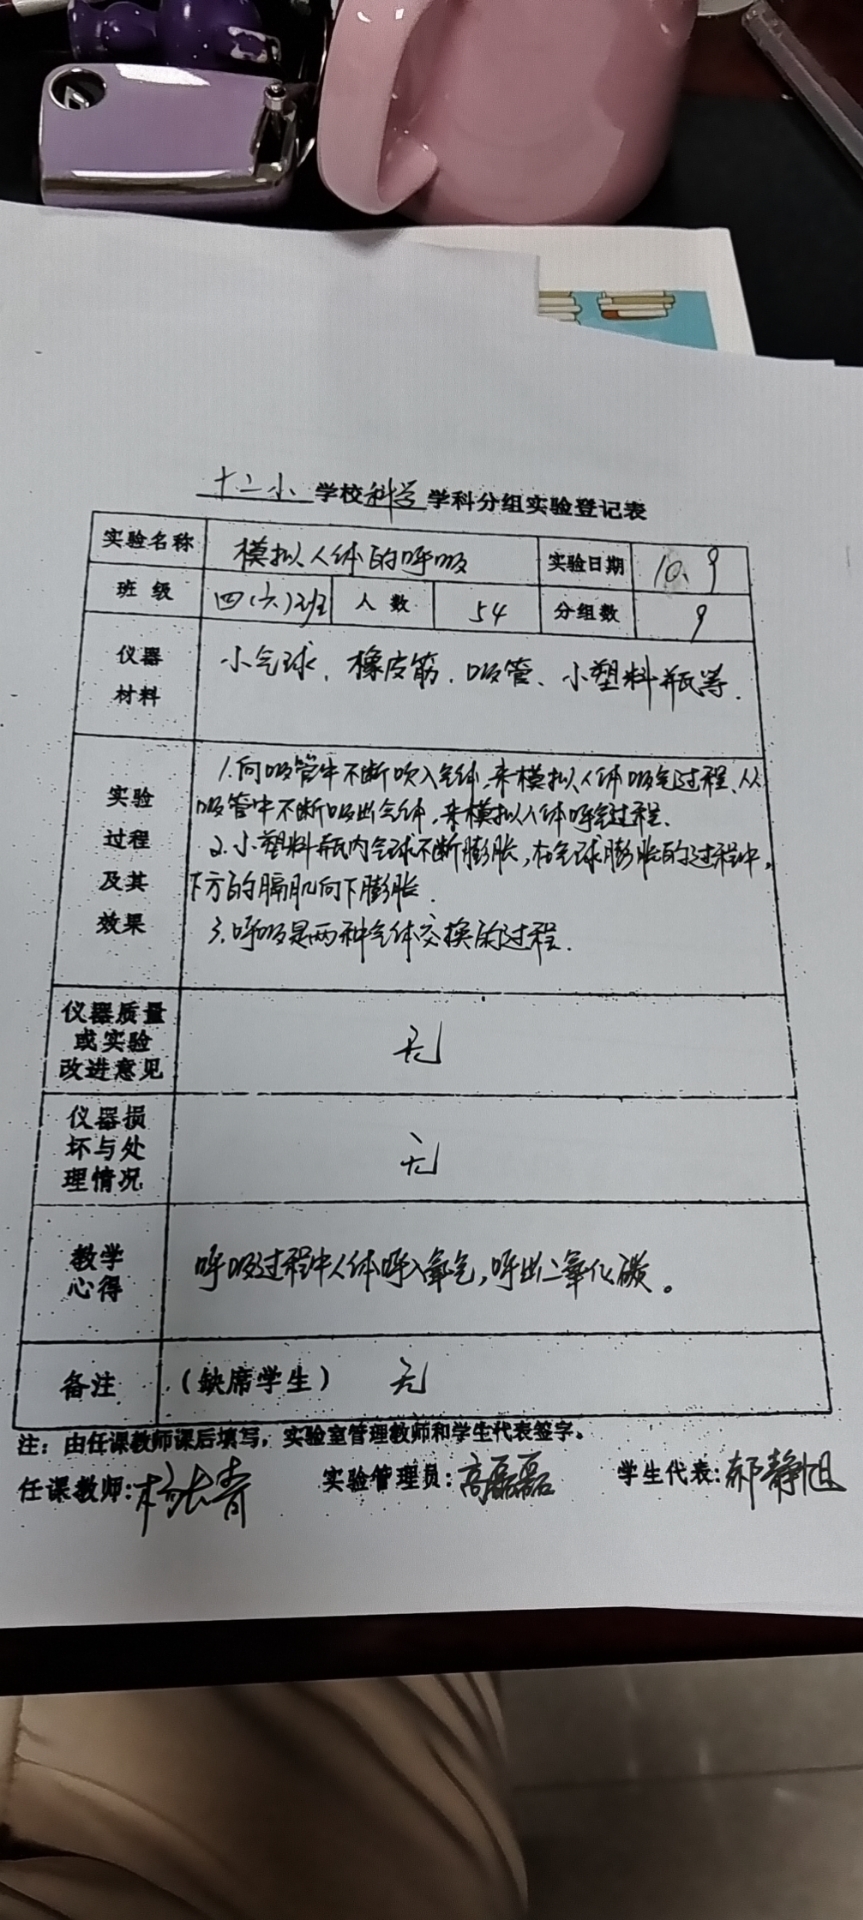 十二小学校科学学科分组实验登记表
实验名称 模拟人体的呼吸 实验日期 10.9
班级 四(六)班 人数 54 分组数 9
仪器材料 小气球、橡皮筋、吸管、小塑料瓶等.
实验过程及其效果
1.向吸管中不断吹入气体,来模拟人体吸气过程、从
吸管中不断吸出气体,来模拟人体呼气过程.
2.小塑料瓶内气球不断膨胀,在气球膨胀的过程中,
下方的膈肌向下膨胀.
3.呼吸是两种气体交换的过程.
仪器质量或实验改进意见 无
仪器损坏与处理情况 无
教学心得 呼吸过程中人体呼入氧气,呼出二氧化碳。
备注 (缺席学生) 无
注:由任课教师课后填写,实验室管理教师和学生代表签字。
任课教师:杨长青 实验管理员:高磊磊 学生代表:郝静旭